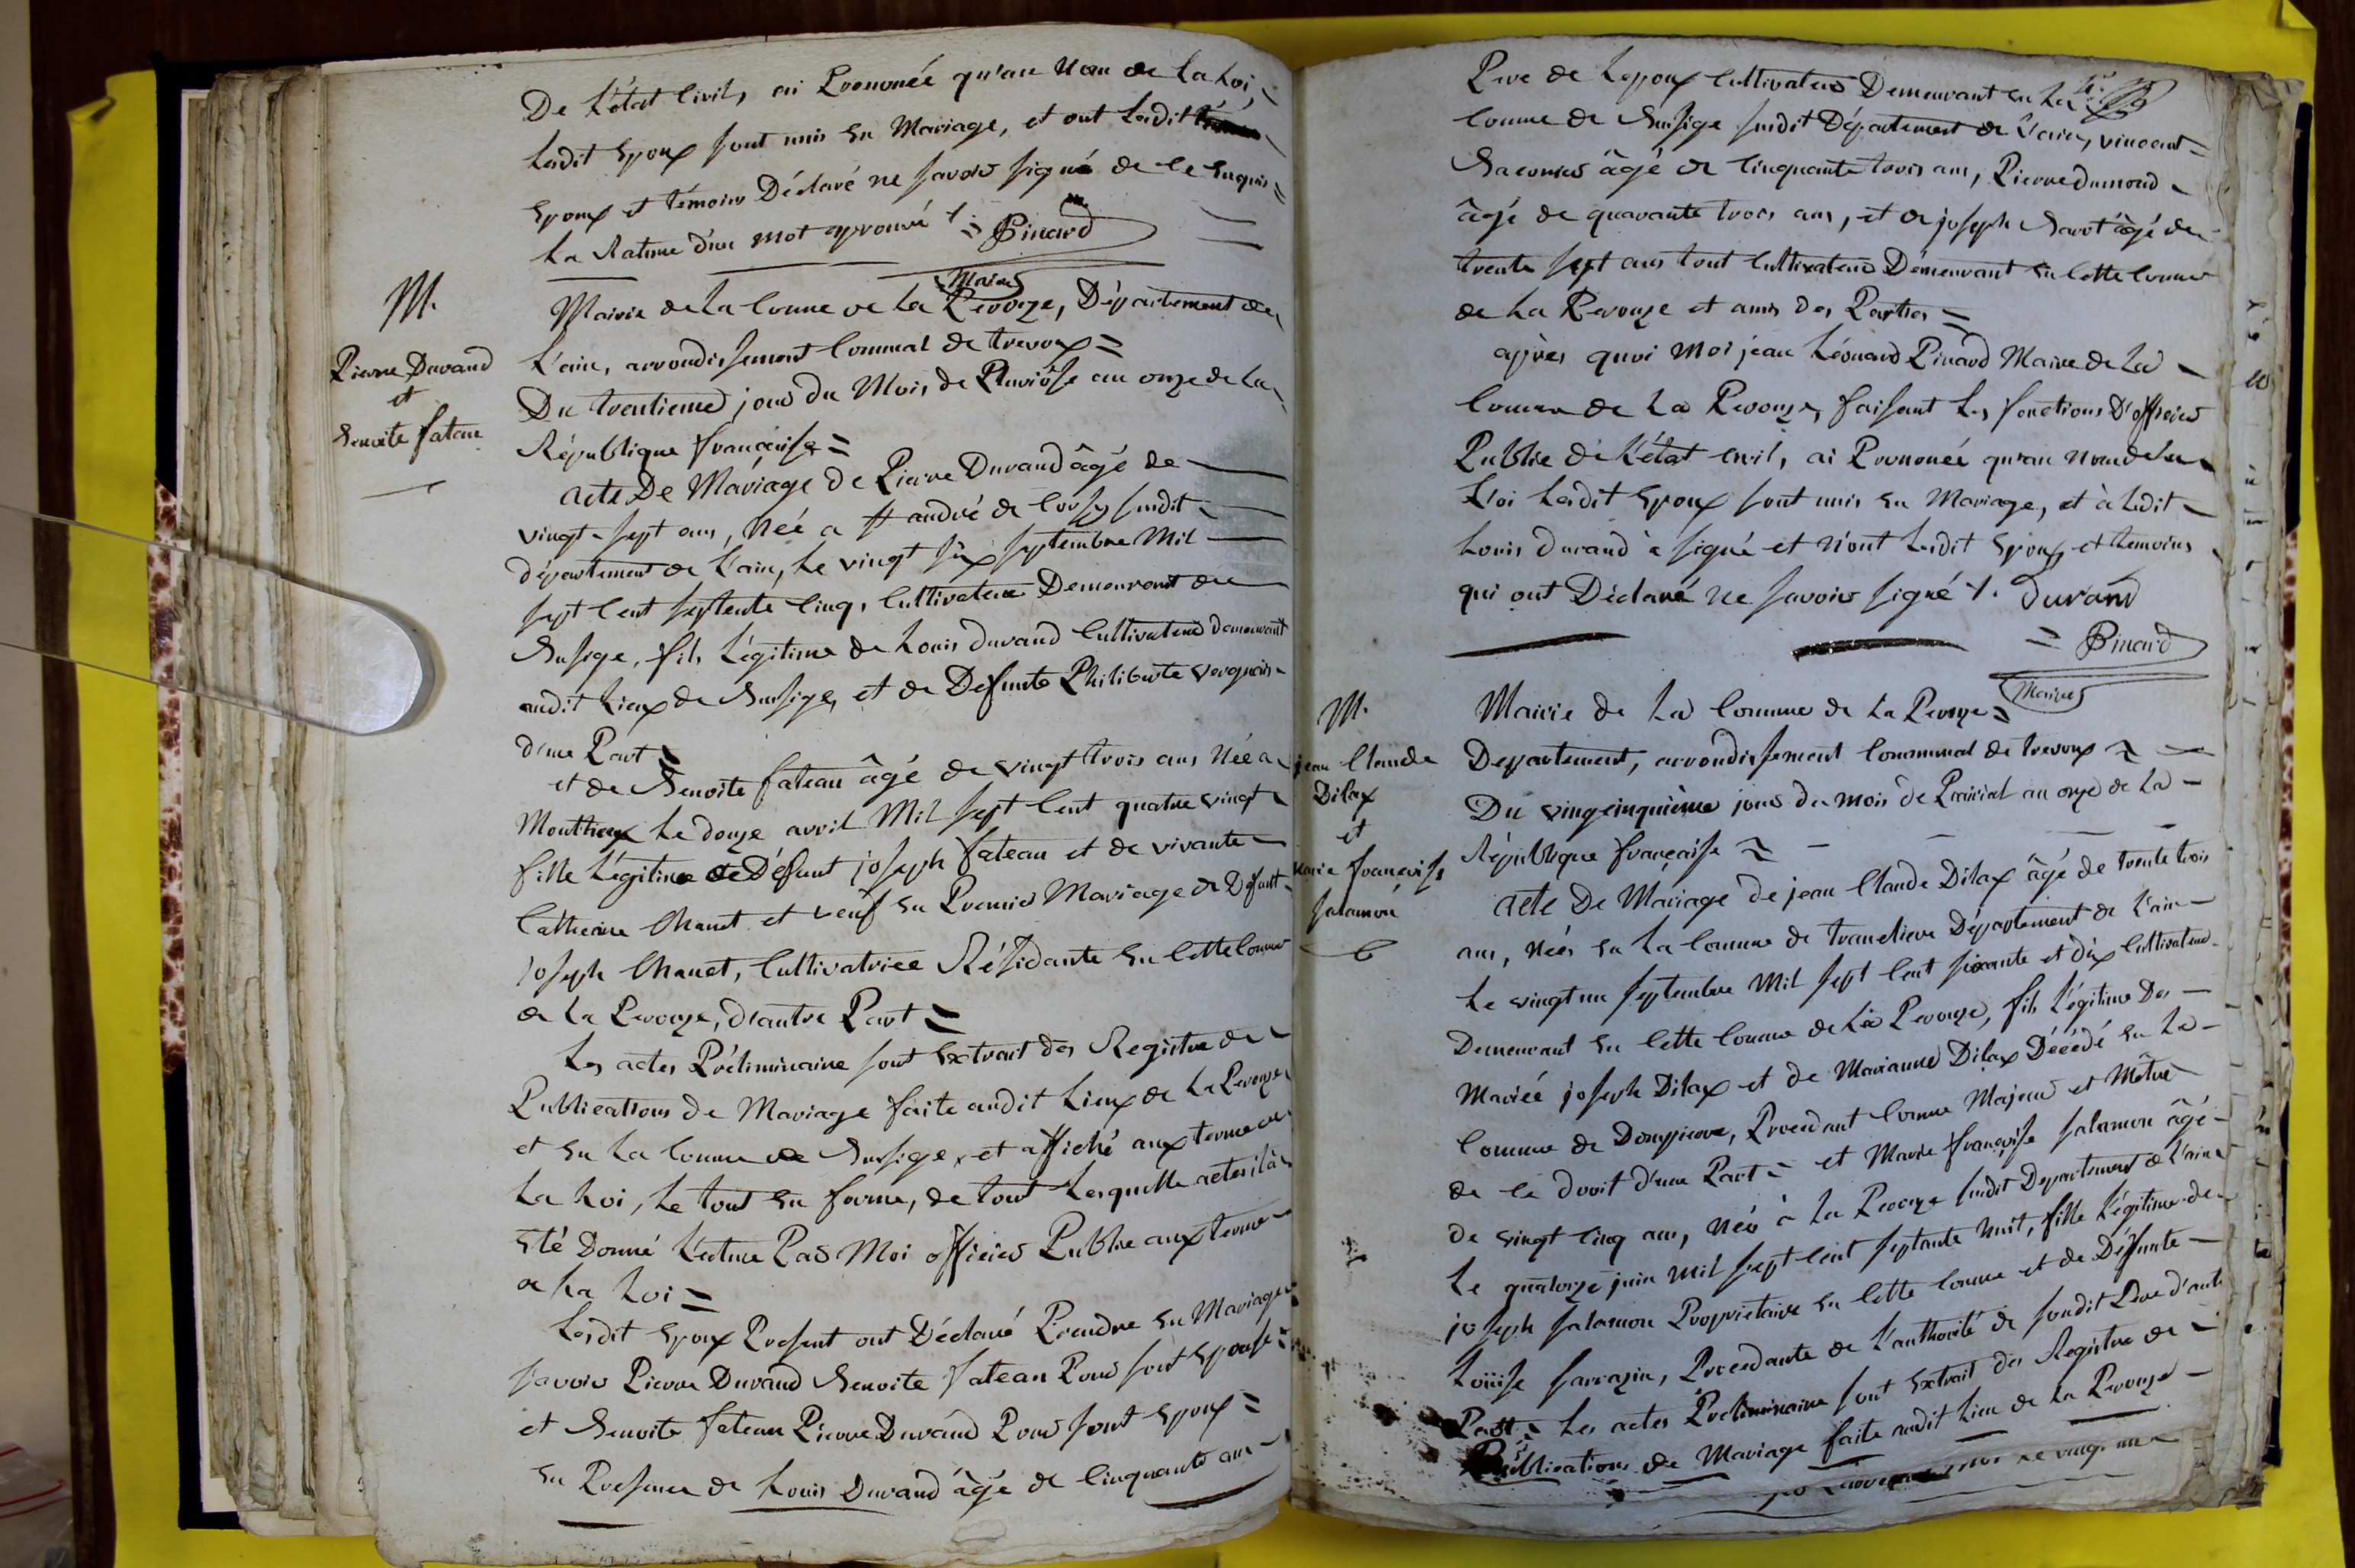 De L'état Civil, ai Prononcé qu'au Nom de La Loi,
Lesdit Epoux sont unis En Mariage, et ont Lesdit
Epoux et témoins Déclaré ne savoir signé de ce Enquis =
La Rature d'un mot aprouvé ./. = Pinard
Maire
M.
Pierre Durand
et
Benoite fateau
Mairie de La Comne de La Perouze, Département de
L'ain, arrondissement Communal de trevoux =
Du trentieme jour du Mois de Pluviôse an onze de La
République française =
acte De Mariage de Pierre Durand âgé de
vingt-sept ans, Née a St andré de Corsy sudit
département de L'ain, Le vingt six septembre Mil
sept Cent septente Cinq, Cultivateur Demeurant de
Bussige, fils Légitime de Louis Durand Cultivateur demeurant
audit Lieux de Bussige, et de Defunte Philiberte
d'une Part =
et de Benoite fateau âgé de vingt trois ans Née a
Monthieux Le douze avril Mil sept Cent quatre vingt
fille Légitime de Défunt joseph fateau et de vivante
Catherine Chanet et veuf En Premier Mariage de Défunt
joseph Chanet, Cultivatrice Résidante En Cette Comne
de La Perouze, d'autre Part =
Les actes Préliminaire sont Extrait des Registre de
Publications de Mariage faite audit Lieux de La Perouze
et En La Comne de Bussige, et affiché aux terme de
La Loi, Le tout En forme, de tout Lesquelle actes il à
Eté Donné Lecture Par Moi officier Public aux terme
de La Loi =
Lesdit Epoux Present ont Déclaré Prendre En Mariage
savoir Pierre Durand Benoite fateau Pour sont Epouse
et Benoite fateau Pierre Durand Pour sont Epoux =
En Presence de Louis Durand âgé de Cinquante ans
Pere de Lepoux Cultivateur Demeurant En La
Comne de Bussige sudit Département de L'ain, vincent
âgé de Cinquante trois ans, Pierre dumond
âgé de quarante trois ans, et de joseph Barot âgé de
trente sept ans tout Cultivateur Demeurant En Cette Comne
de La Perouze et amis des Parties =
après quoi Moi jean Léonard Pinard Maire de La
Comne de La Perouze, faisant Les fonctions D'officier
Public de L'état civil, ai Prononcé qu'au Nom de La
Loi Lesdit Epoux sont unis En Mariage, et à Ledit
Louis durand à signé et N'ont Lesdit Epoux et temoins
qui ont Déclaré Ne savoir signé ./. durand
= Pinard
Maire
M.
jean Claude
Dilax
et
Marie françoise
salamon
Mairie de La Commune de La Perouze =
Departement, arrondissement Communal de trevoux =
Du vingcinquième jour du mois de Prairial an onze de La
République française =
acte De Mariage de jean Claude Dilax âgé de trente trois
ans, Néés En La Comune de trancliere Département de L'ain
Le vingt un septembre Mil sept Cent soixante et dix Cultivateur
Demeurant En Cette Comune de La Perouze, fils Légitime Des
Mariéé joseph Dilax et de Marianne Dilax Décédé En La
Commune de Dompierre, Procedant Comme Majeur et Mêtre
de ce droit d'une Part = et Marie françoise salamon âgé
de vingt Cinq ans, Née à La Perouze sudit Departement de L'ain
Le quatorze juin Mil sept Cent septante huit, fille Légitime de
joseph salamon Proprietaire En Cette Comune et de Défunte
Loüise sarrazin, Procedante de L'authorité de sondit Pere d'autre
Part = Les actes Préliminaire sont Extrait des Registre de
Publications de Mariage faite audit Lieu de La Perouze